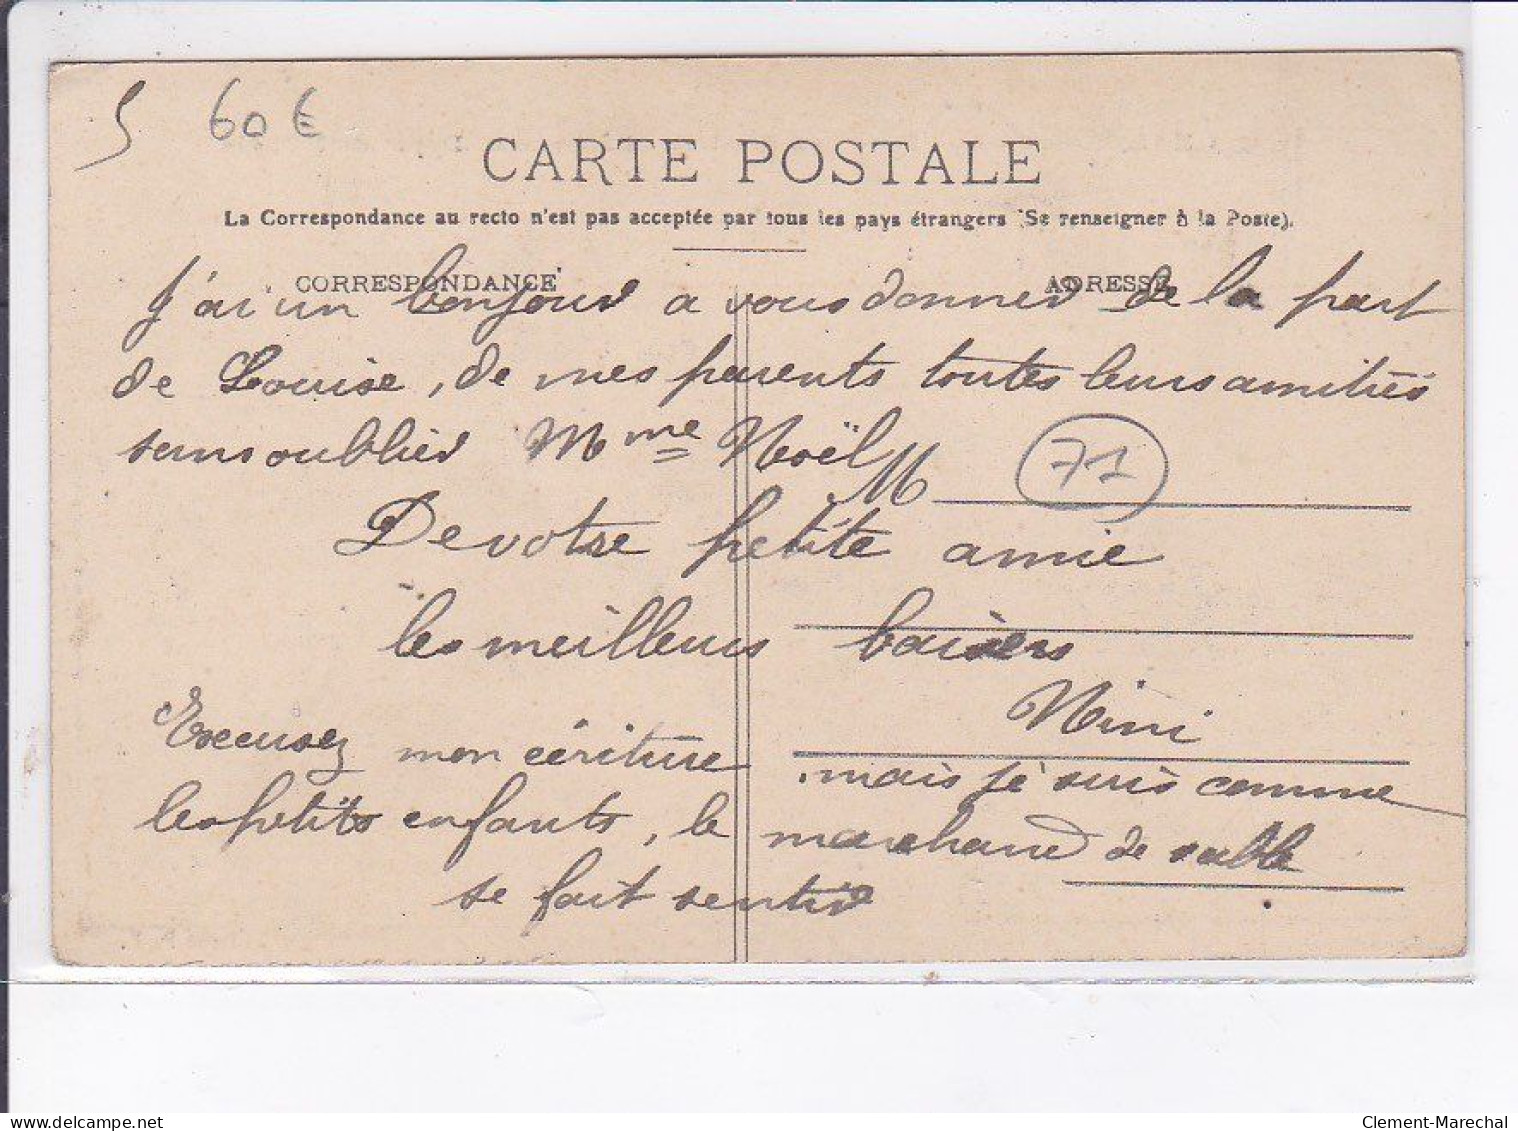 5 60€
CARTE POSTALE
La Correspondance au recto n'est pas acceptée par tous les pays étrangers (Se renseigner à la Poste).
CORRESPONDANCE ADRESSE
J'ai un bonjour a vous donner de la part
de Louise, de mes parents toutes leurs amitiés
sans oublier Mme Noël
M 71
De votre petite amie
les meilleurs baisers
Nini
Excusez mon écriture mais je suis comme
les petits enfants, le marchand de sable
se fait sentir
delcampe.net
Clement-Marechal